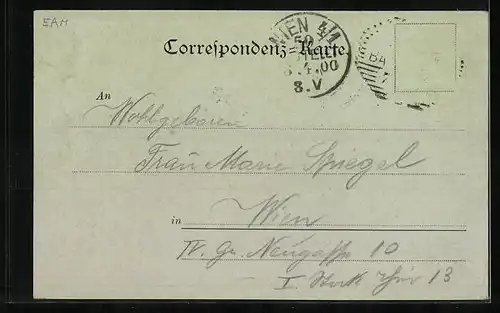 EAM
Correspondenz-Karte.
WIEN 4/1
50
4.00
8.V
An
Wohlgeboren
Frau Marie Spiegel
in Wien
IV. Gr. Neugasse 10
I. Stock Thür 13